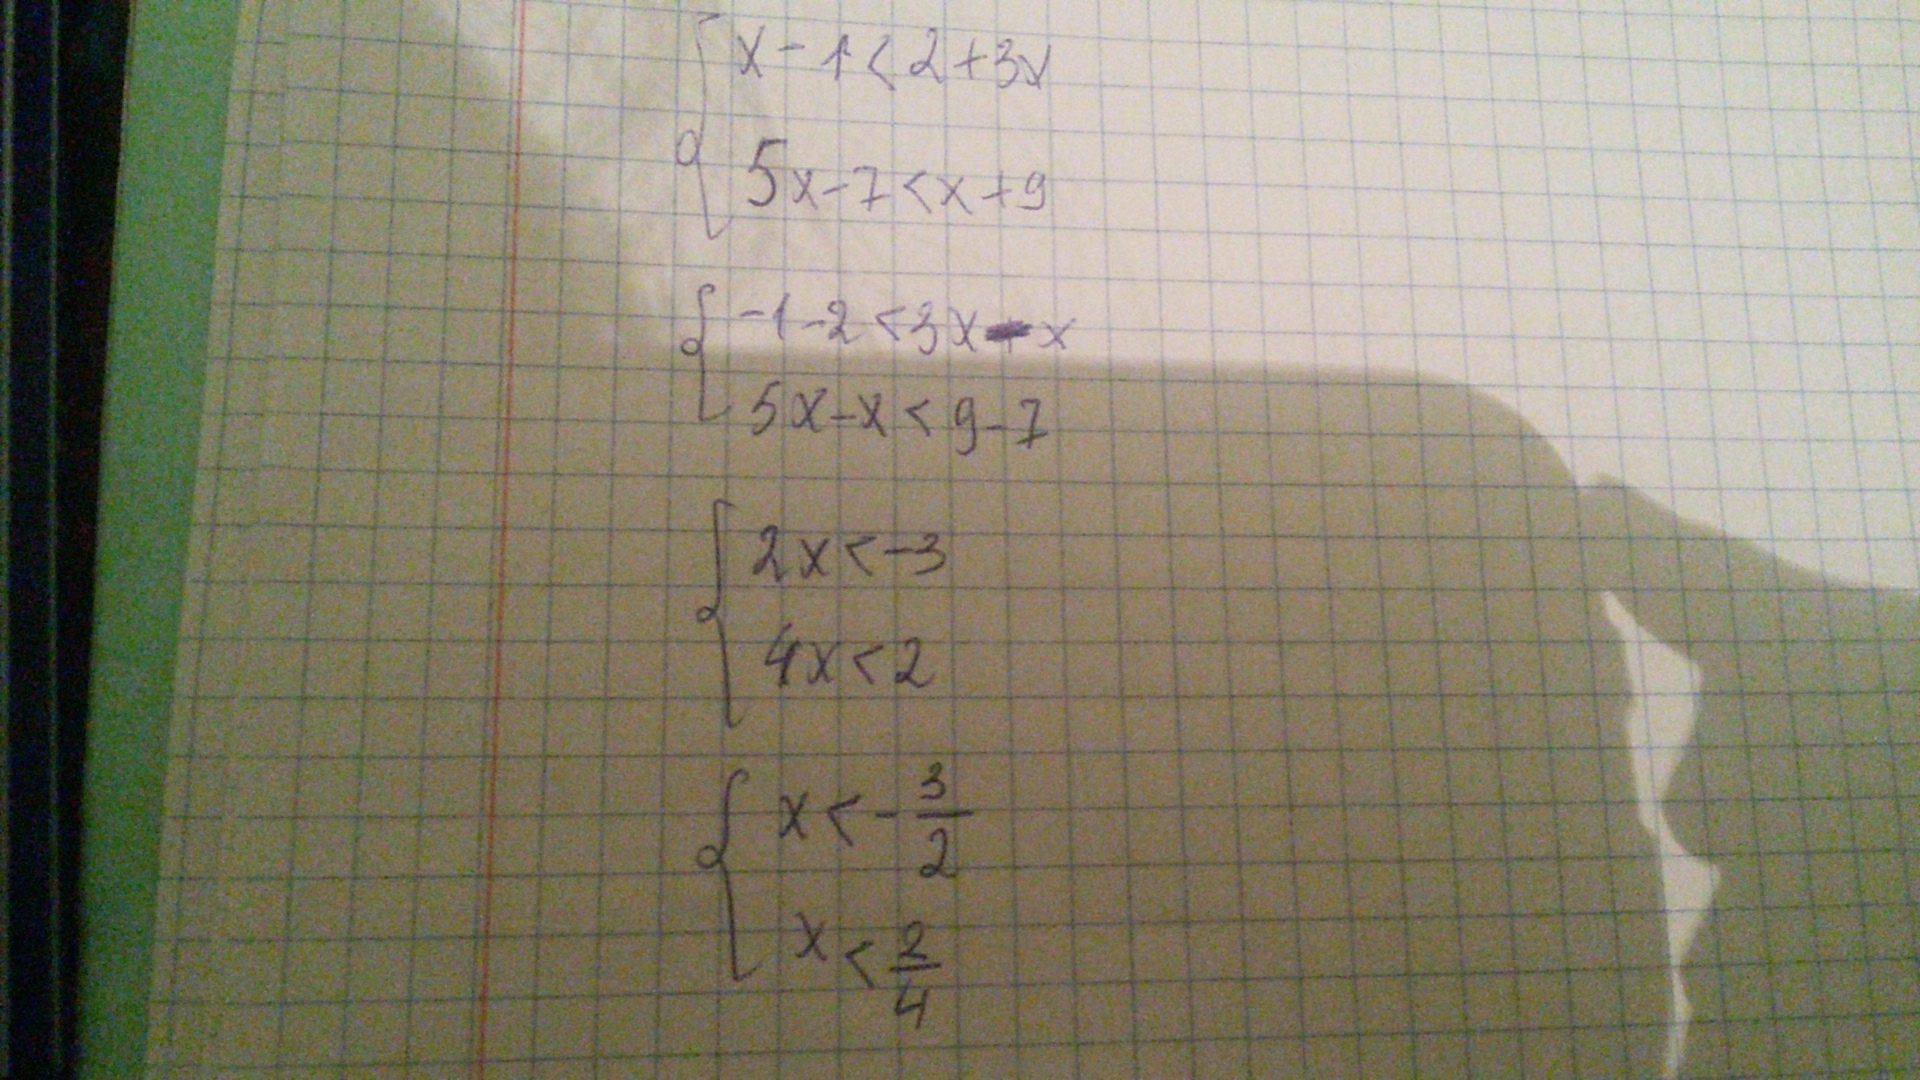 x - 1 < 2 + 3x
5x - 7 < x + 9
-1 - 2 < 3x - x
5x - x < 9 - 7
2x < -3
4x < 2
x < - 3/2
x < 2/4